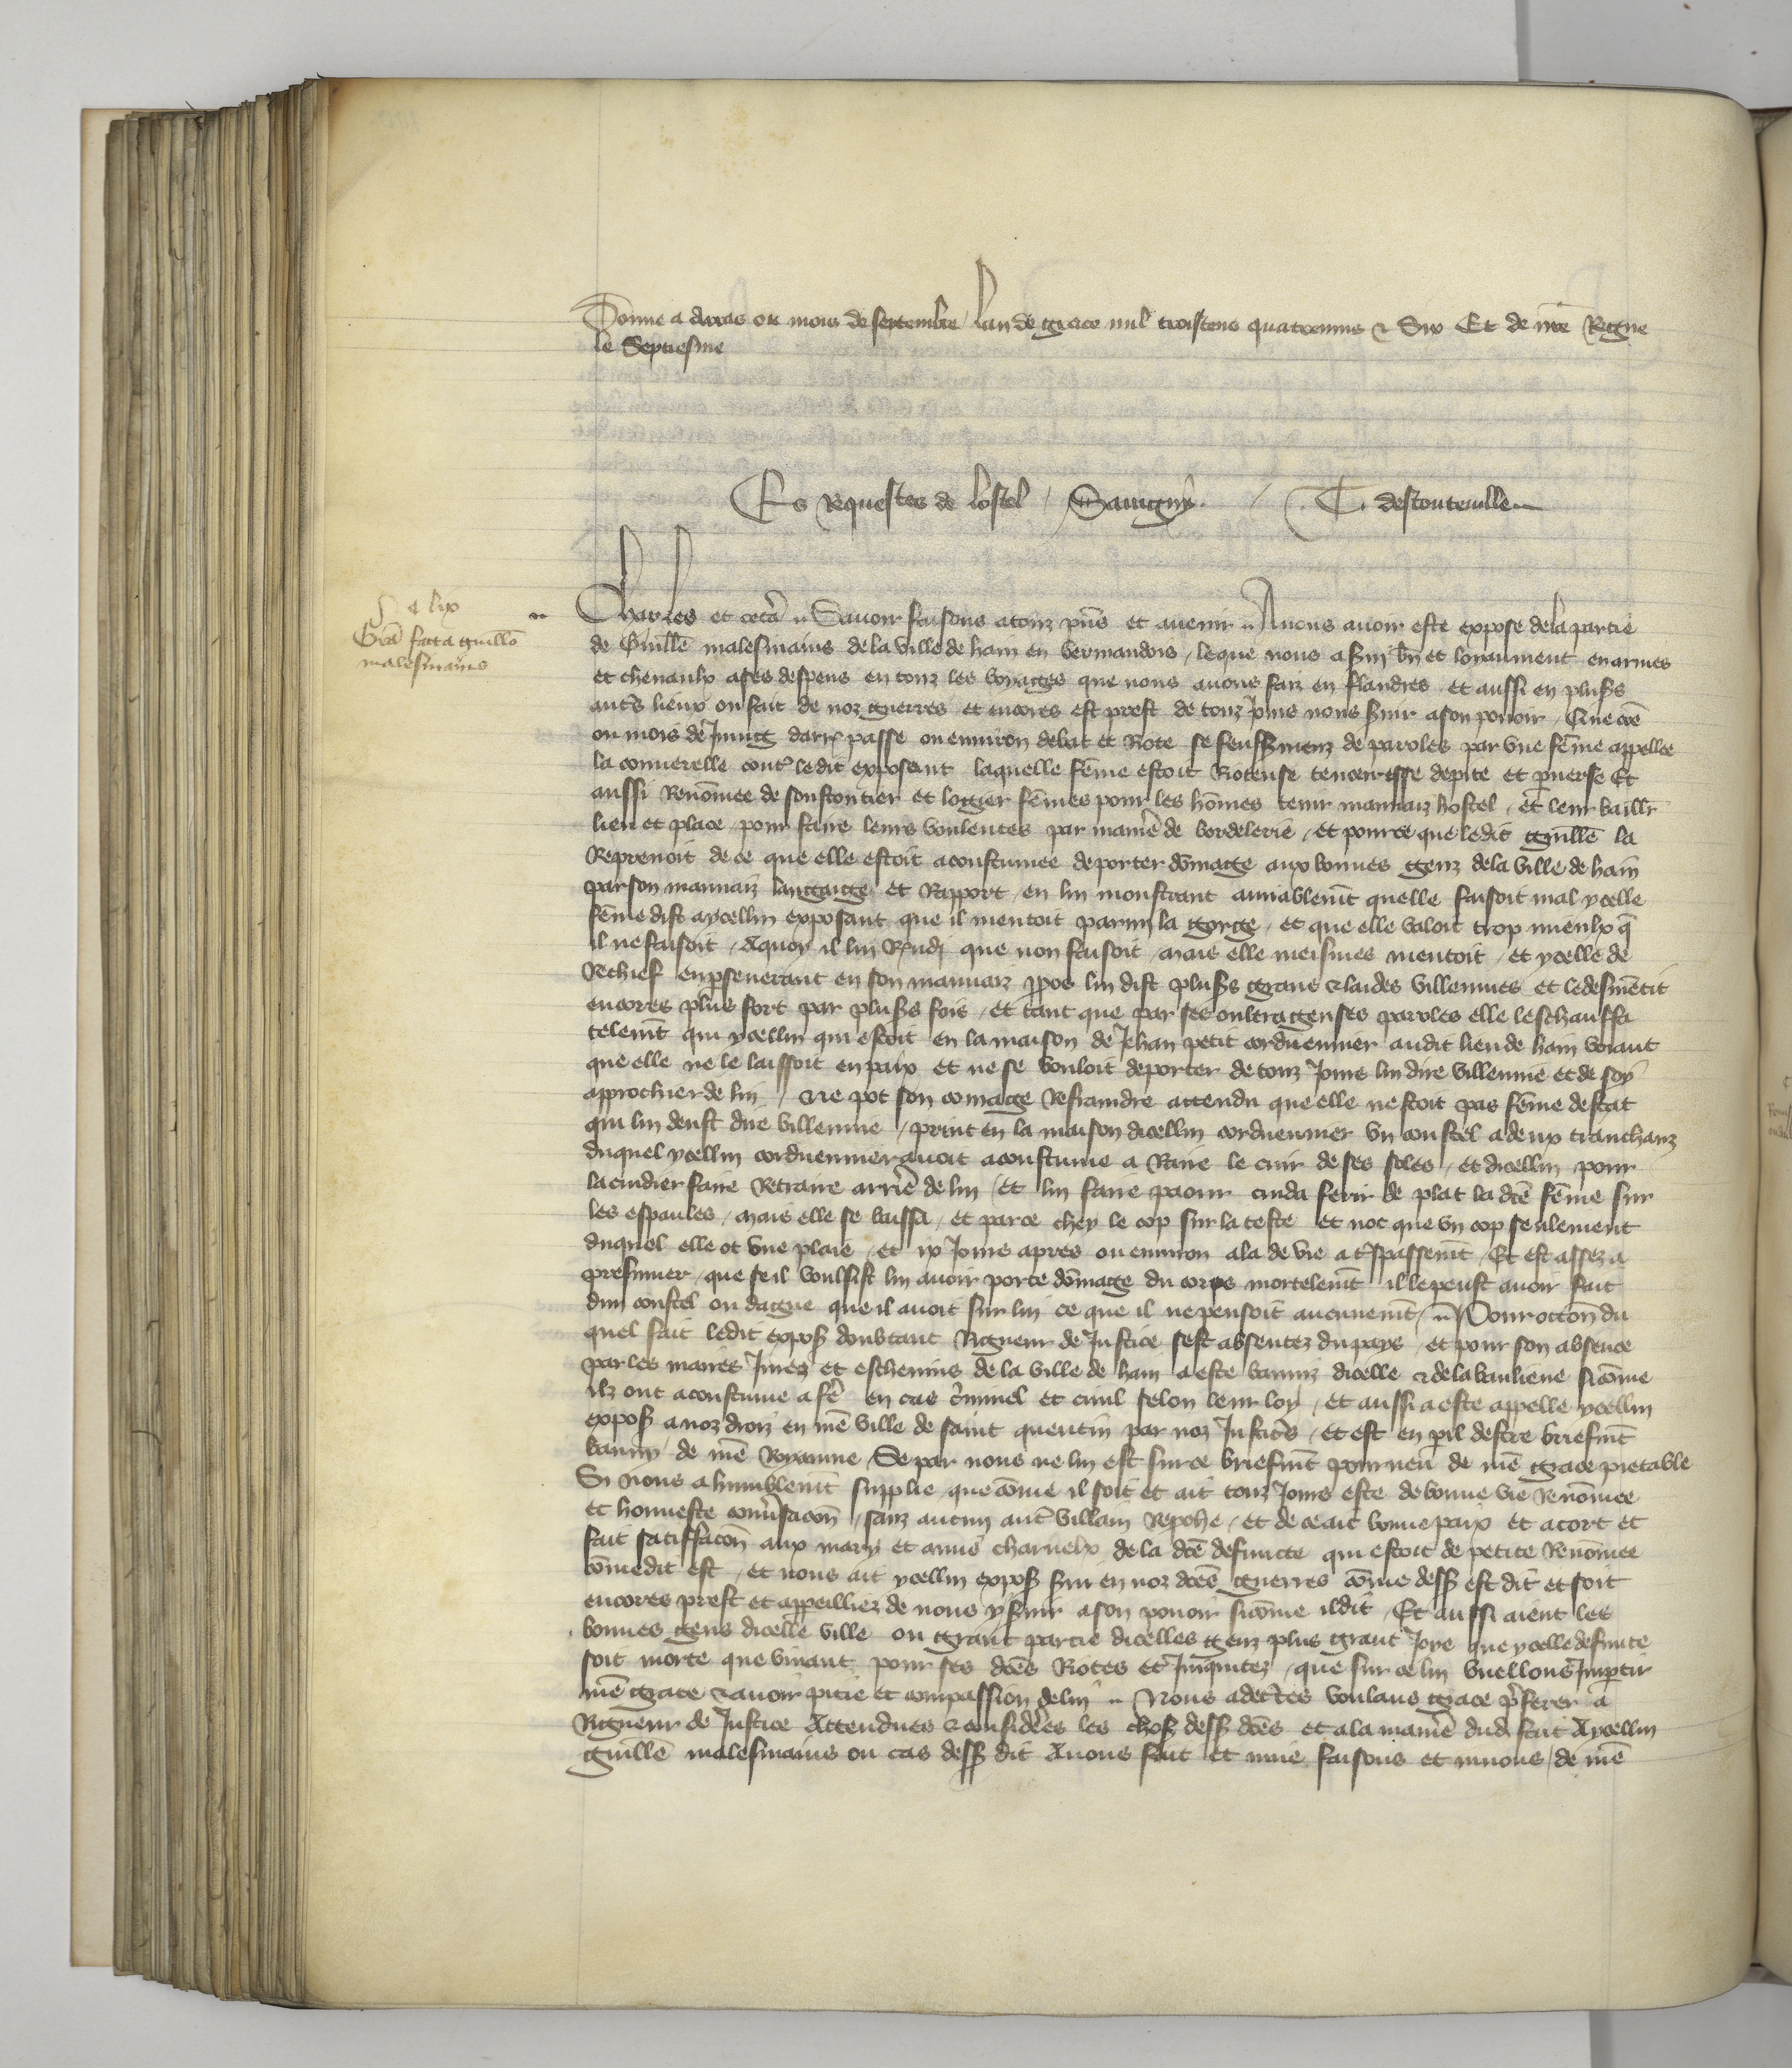 Donne a Arras ou mois de septembre lan de grace mil troiscens quatrevins & Six Et de nr̃e Regne
le Septiesme
Es Requestes de lostel / Savigny . / T. destouteville
iiij lix
Gr̃a fact̃a guill̃o
malesmains
Charles et cet̃a Savoir faisons a touz p̃ns et avenir A nous avoir este expose de la partie
de Guill̃e malesmains de la ville de ham en vermandois / leque nous a servi bñ et loyaument en armes
et chevaulx a ses despens en touz les voyages que nous avons faiz en flandres et aussi en plus̃s
aut̃s lieux ou fait de noz guerres et encores est prest de touz jours nous s̃vir a son povoir / Que c̃e
ou mois de Juing darr̃ passe ou environ debat et Riote se feuss̃ meuz de paroles par une fẽme appellee
la connerelle cont̃ ledit exposant laquelle fẽme estoit Rioteuse tenceresse depite et p̃verse Et
aussi Renõmee de soustoitier et logier fẽmes pour les hõmes tenir mauvaiz hostel / et leur baill̃r
lieu et place / pour faire leurs voulentes par manir̃e de bordelerie / et pour ce que ledit guill̃e la
Reprenoit de ce que elle estoit acoustumee de porter dõmage aux bonnes genz de la ville de ham
par son mauvaiz langaige et Rapport / en lui monstrant amiablem̃t quelle faisoit mal ycelle
fẽme dist a ycellui exposant que il mentoit parmi la gorge / et que elle valoit trop mieulx q̃
il ne faisoit / A quoy il lui R̃nd̃i que non faisoit / mais elle meismes mentoit / et ycelle de
Rechief en p̃severant en son mauvaiz p̃pos lui dist plus̃s grans & laides villenies et le desmẽtit
encores plus fort par plus̃s fois / et tant que par ses oultrageuses paroles elle leschauffa
telem̃t qui ycellui qui estoit en la maison de Jehan petit corduennier audit lieu de ham voiant
que elle ne le laissoit en paix et ne se vouloit deporter de touz jours lui dire villennie et de soy
approchier de lui / & ne pot son corrage Refraindre attendu que elle nestoit pas fẽme destat
qui lui deust dire villennie / print en la maison dicellui corduennier un coustel a deux tranchanz
duquel ycellui corduennier avoit acoustume a Raire le cuir de ses soles / et dicellui pour
la cuidier faire Retraire arrir̃e de lui / et lui faire paour cuida ferir de plat la dc̃e fẽme sur
les espaules / mais elle se baissa / et par ce chey le cop sur la teste et not que un cop seulement
duquel elle ot une plaie / et ix jours apres ou environ ala de vie a t̃spassem̃t / Et est assez a
presumer / que se il voulsist lui avoir porte dõmage du corps mortelem̃t il le peust avoir fait
dun coustel ou dague que il avoit sur lui ce que il ne pensoit aucunem̃t / Pour occõn du
quel fait ledit expos̃ doubtant Rigueur de Justice sest absentez du pays / et pour son absence
par les maires Jurez et eschevins de la ville de ham a este banniz dicelle & de la banliene sicõme
ilz ont acoustume a fr̃e en cas c̃minel et civil selon leur loy / et aussi a este appelle ycellui
expos̃ a noz droiz en nr̃e ville de saint quentin par noz Justic̃s / et est en p̃il destre briefm̃t
banniy de nr̃e Royaume / Se par nous ne lui est sur ce briefm̃t pourveu de nr̃e grace pietable
Si nous a humblem̃t supplie / que cõme il soit et ait touz jours este de bonne vie Renõmee
et honneste conṽsacõn / sanz aucun aut̃ villain Rep̃che / et de ce ait bonne paix et acort et
fait satisfacõn aux mary et amis charnelx de la dc̃e defuncte qui estoit de petite Renõmee
cõme dit est / et nous ait ycellui expos̃ s̃vi en noz dc̃es guerres cõme dess̃ est dit et soit
encores prest et appeilliez de nous y s̃vir a son povoir sicõme il dit / Et aussi aient les
bonnes gens dicelle ville ou grant partie dicelles genz plus grant joye que ycelle defuncte
soit morte que vivant pour ses dc̃es Riotes et Iniquitez / que sur ce lui vueillons Imp̃tir
nr̃e grace & avoir pitie et compassion de lui Nous adect̃es voulans grace p̃ferer a
Rigueur de Justice Attendues & consider̃es les chos̃ dess̃ dc̃es et a la manir̃e dud̃ fait A ycellui
guill̃e malesmains ou cas dess̃ dit Avons fait et mue faisons et muons / de nr̃e